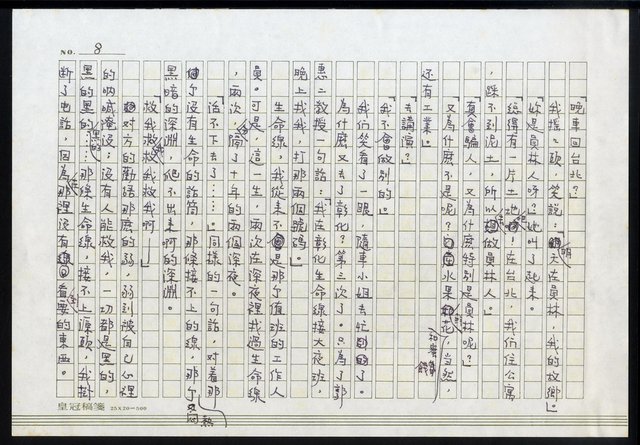 NO. 8
晚車回台北?」
我搖了頭,笑說:「明天在員林,我的故鄉。」
「妳是員林人呀?」她叫了起來。
「總得有一片土地呀!在台北,我們住公寓
,踩不到泥土,所以做員林人。」
「真會騙人,又為什麼特別是員林呢?」
「又為什麼不是呢?有水果和花,當然,
還有工業。」
「去講演?」
「我不會做別的。」
我們笑看了一眼,隨車小姐去忙了。
為什麼又去了彰化?第三次了。只為了郭
惠二教授一句話:「我在彰化生命線接大夜班,
晚上找我,打那兩個號碼。」
生命線,我從來不是那個值班的工作人
員。可是,這一生,兩次在深夜裡找過生命線
,兩次,隔了十年的兩個深夜。
「活不下去了……」同樣的一句話,對着那
個沒有生命的話筒,那條接不上的線,那個又悶
黑暗的深淵,爬不出來啊的深淵。
「救我救我救我啊——」
對方的勸語那麼的弱,弱到被自己心裡
的吶喊淹沒;沒有人能救我,一切都是黑的,
黑的黑的……那條生命線,接不上源頭,我掛
斷了電話,因為那裡沒有我要的東西。
皇冠稿箋 25×20=500